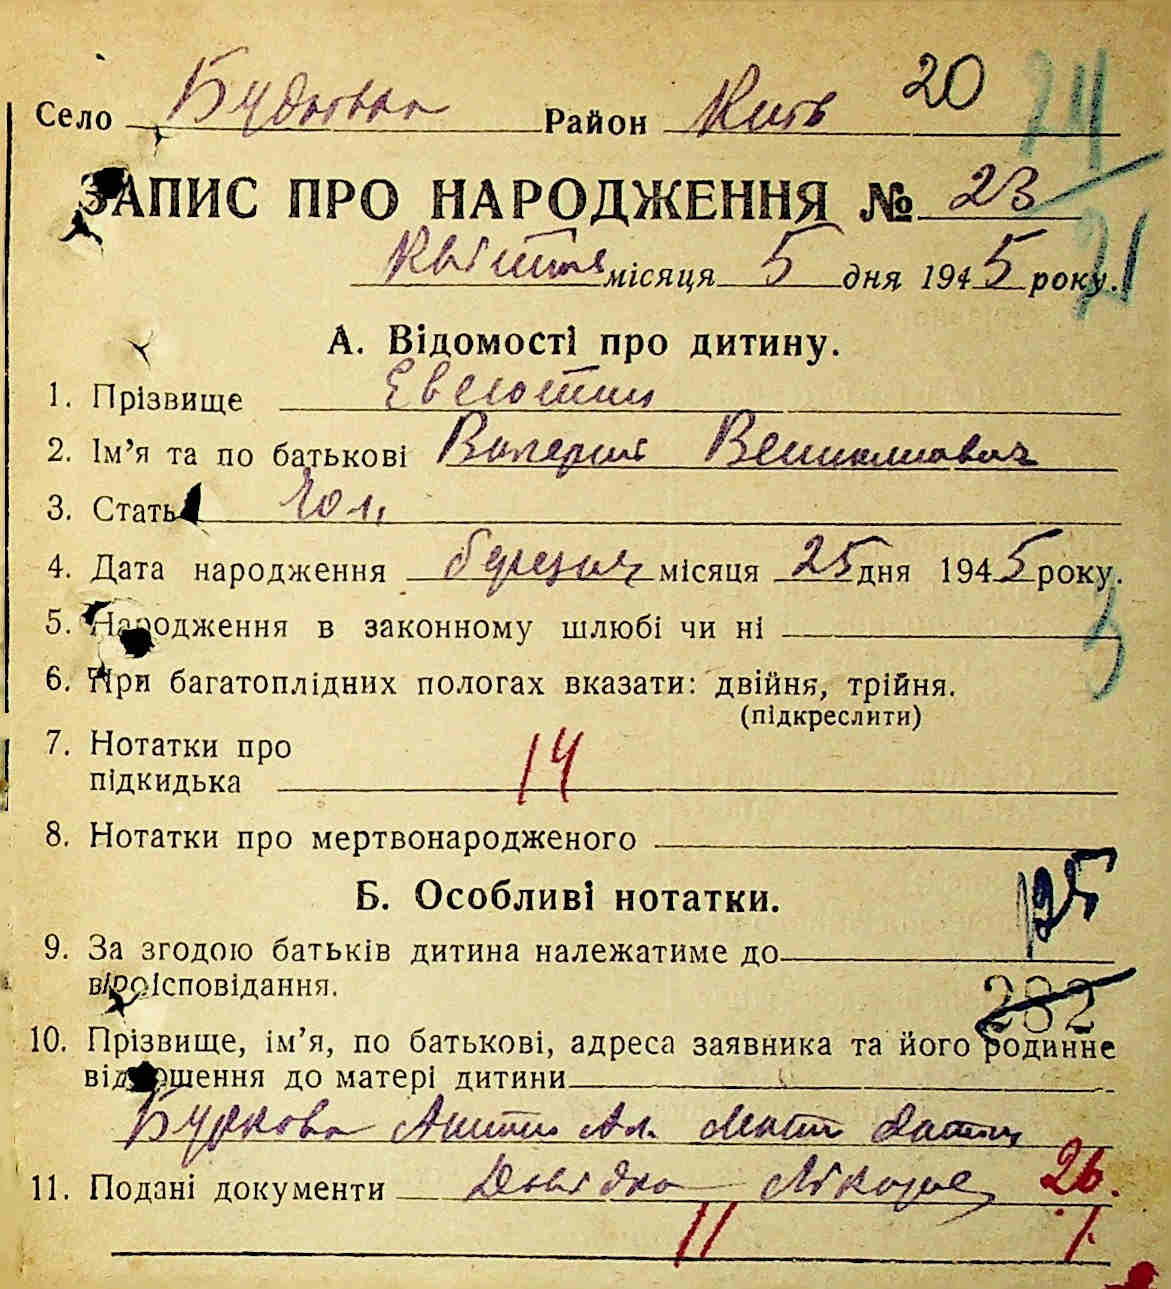 20 24
Село Будаєвка Район Київ
ЗАПИС ПРО НАРОДЖЕННЯ № 23
21
Квітня місяця 5 дня 1945 року.
А. Відомості про дитину.
1. Прізвище
2. Ім’я та по батькові Валерий
3. Стать Чол.
4. Дата народження березня місяця 25 дня 1945 року.
5. Народження в законному шлюбі чи ні
6. При багатоплідних пологах вказати: двійня, трійня.
(підкреслити)
7. Нотатки про
підкидька
14
8. Нотатки про мертвонародженого
Б. Особливі нотатки.
125
9. За згодою батьків дитина належатиме до
віроісповідання.
282
10. Прізвище, ім’я, по батькові, адреса заявника та його родинне
відношення до матері дитини
Буркова Ал. Мати
11. Подані документи Довідка Лікарні 26.
11